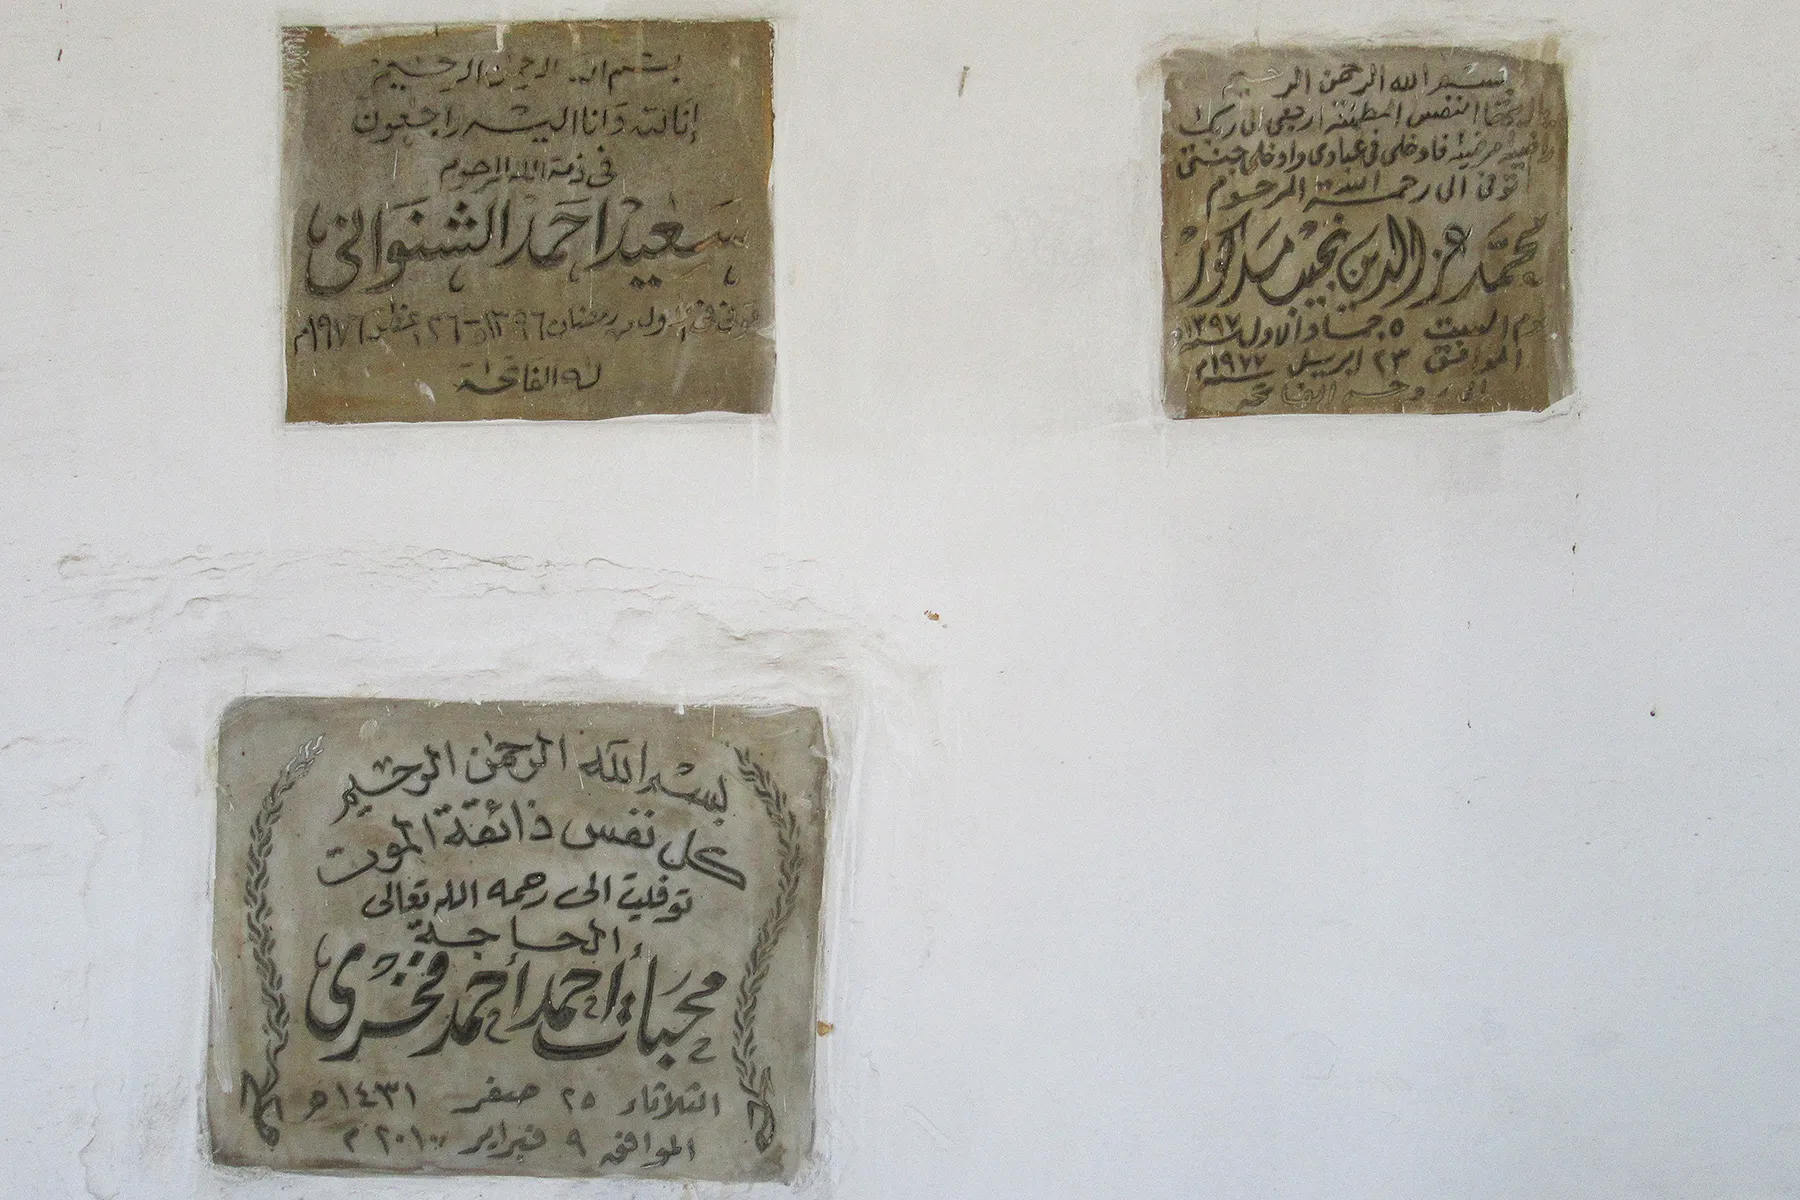 بسم الله الرحمن الرحيم
إنا لله وانا اليه راجعون
فى ذمة الله المرحوم
سعيد احمد الشنوانى
رمضان ١٣٩٦
١٩٧٦م
له الفاتحة
بسم الله الرحمن الرحيم
النفس المطمئنة ارجعى الى ربك
راضية مرضية فادخلى فى عبادى وادخلى جنتى
توفى الى رحمة الله المرحوم
محمد عز الدين نجيب مدكور
يوم السبت ٥ جماد الاول سنة ١٣٩٧
الموافق ٢٣ ابريل سنة ١٩٧٧م
الى روحه الفاتحة
بسم الله الرحمن الرحيم
كل نفس ذائقة الموت
توفيت الى رحمه الله تعالى
الحاجة
محبات أحمد أحمد فخرى
الثلاثاء ٢٥ صفر ١٤٣١ه
الموافق ٩ فبراير ٢٠١٠م